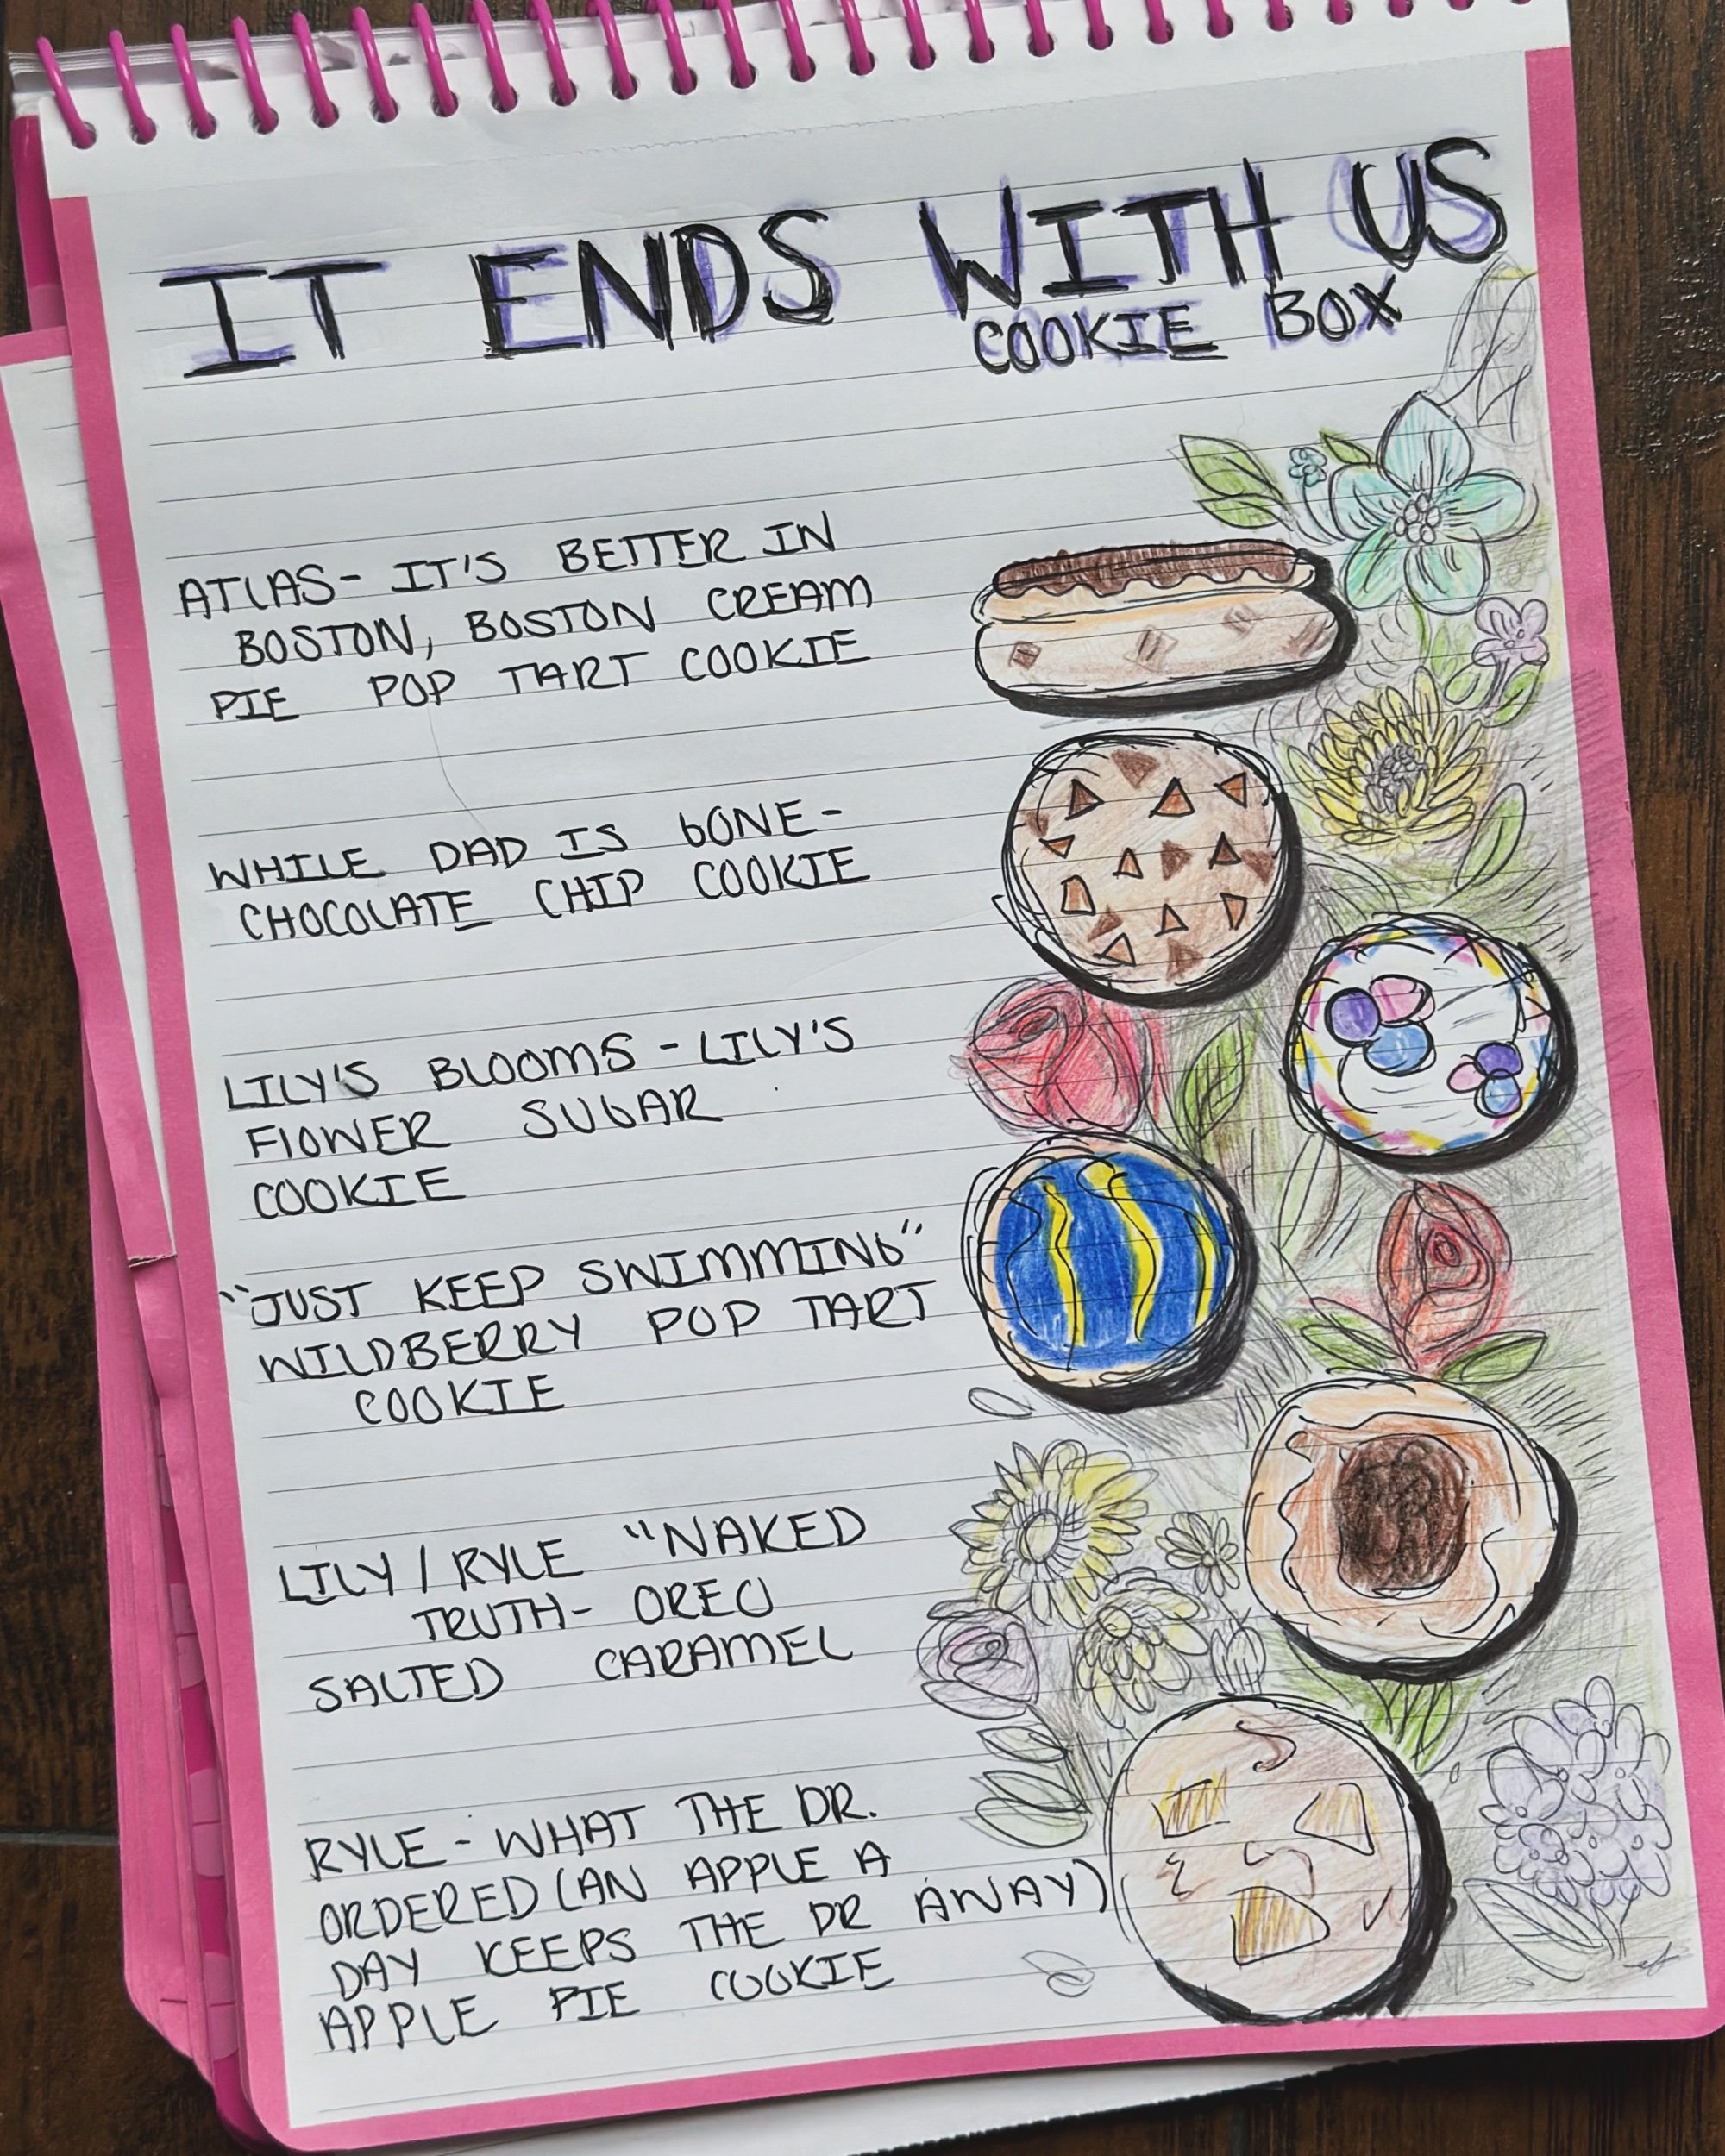 IT ENDS WITH US
COOKIE BOX
ATLAS- IT'S BETTER IN
BOSTON, BOSTON CREAM
PIE POP TART COOKIE
WHILE DAD IS GONE-
CHOCOLATE CHIP COOKIE
LILY'S BLOOMS - LILY'S
FLOWER SUGAR
COOKIE
"JUST KEEP SWIMMING"
WILDBERRY POP TART
COOKIE
LILY / RYLE "NAKED
TRUTH- OREO
SALTED CARAMEL
RYLE - WHAT THE DR.
ORDERED (AN APPLE A
DAY KEEPS THE DR AWAY)
APPLE PIE COOKIE